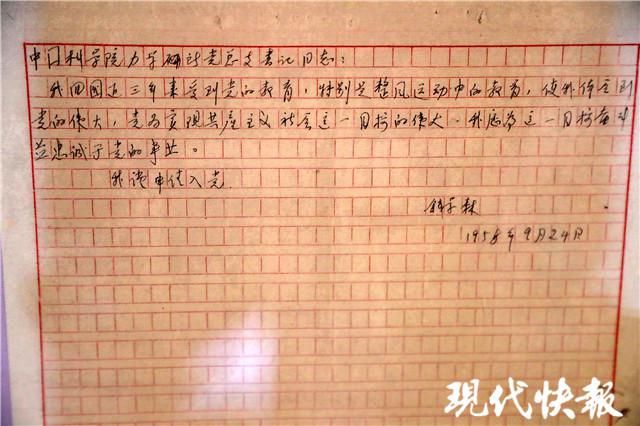 中国科学院力学研究所党总支书记同志：
我回国近三年来受到党的教育，特别是整风运动中的教育，使我体会到
党的伟大，党为实现共产主义社会这一目标的伟大。我愿为这一目标奋斗
并忠诚于党的事业。
我谨申请入党
钱学森
1958年9月24日
现代快报